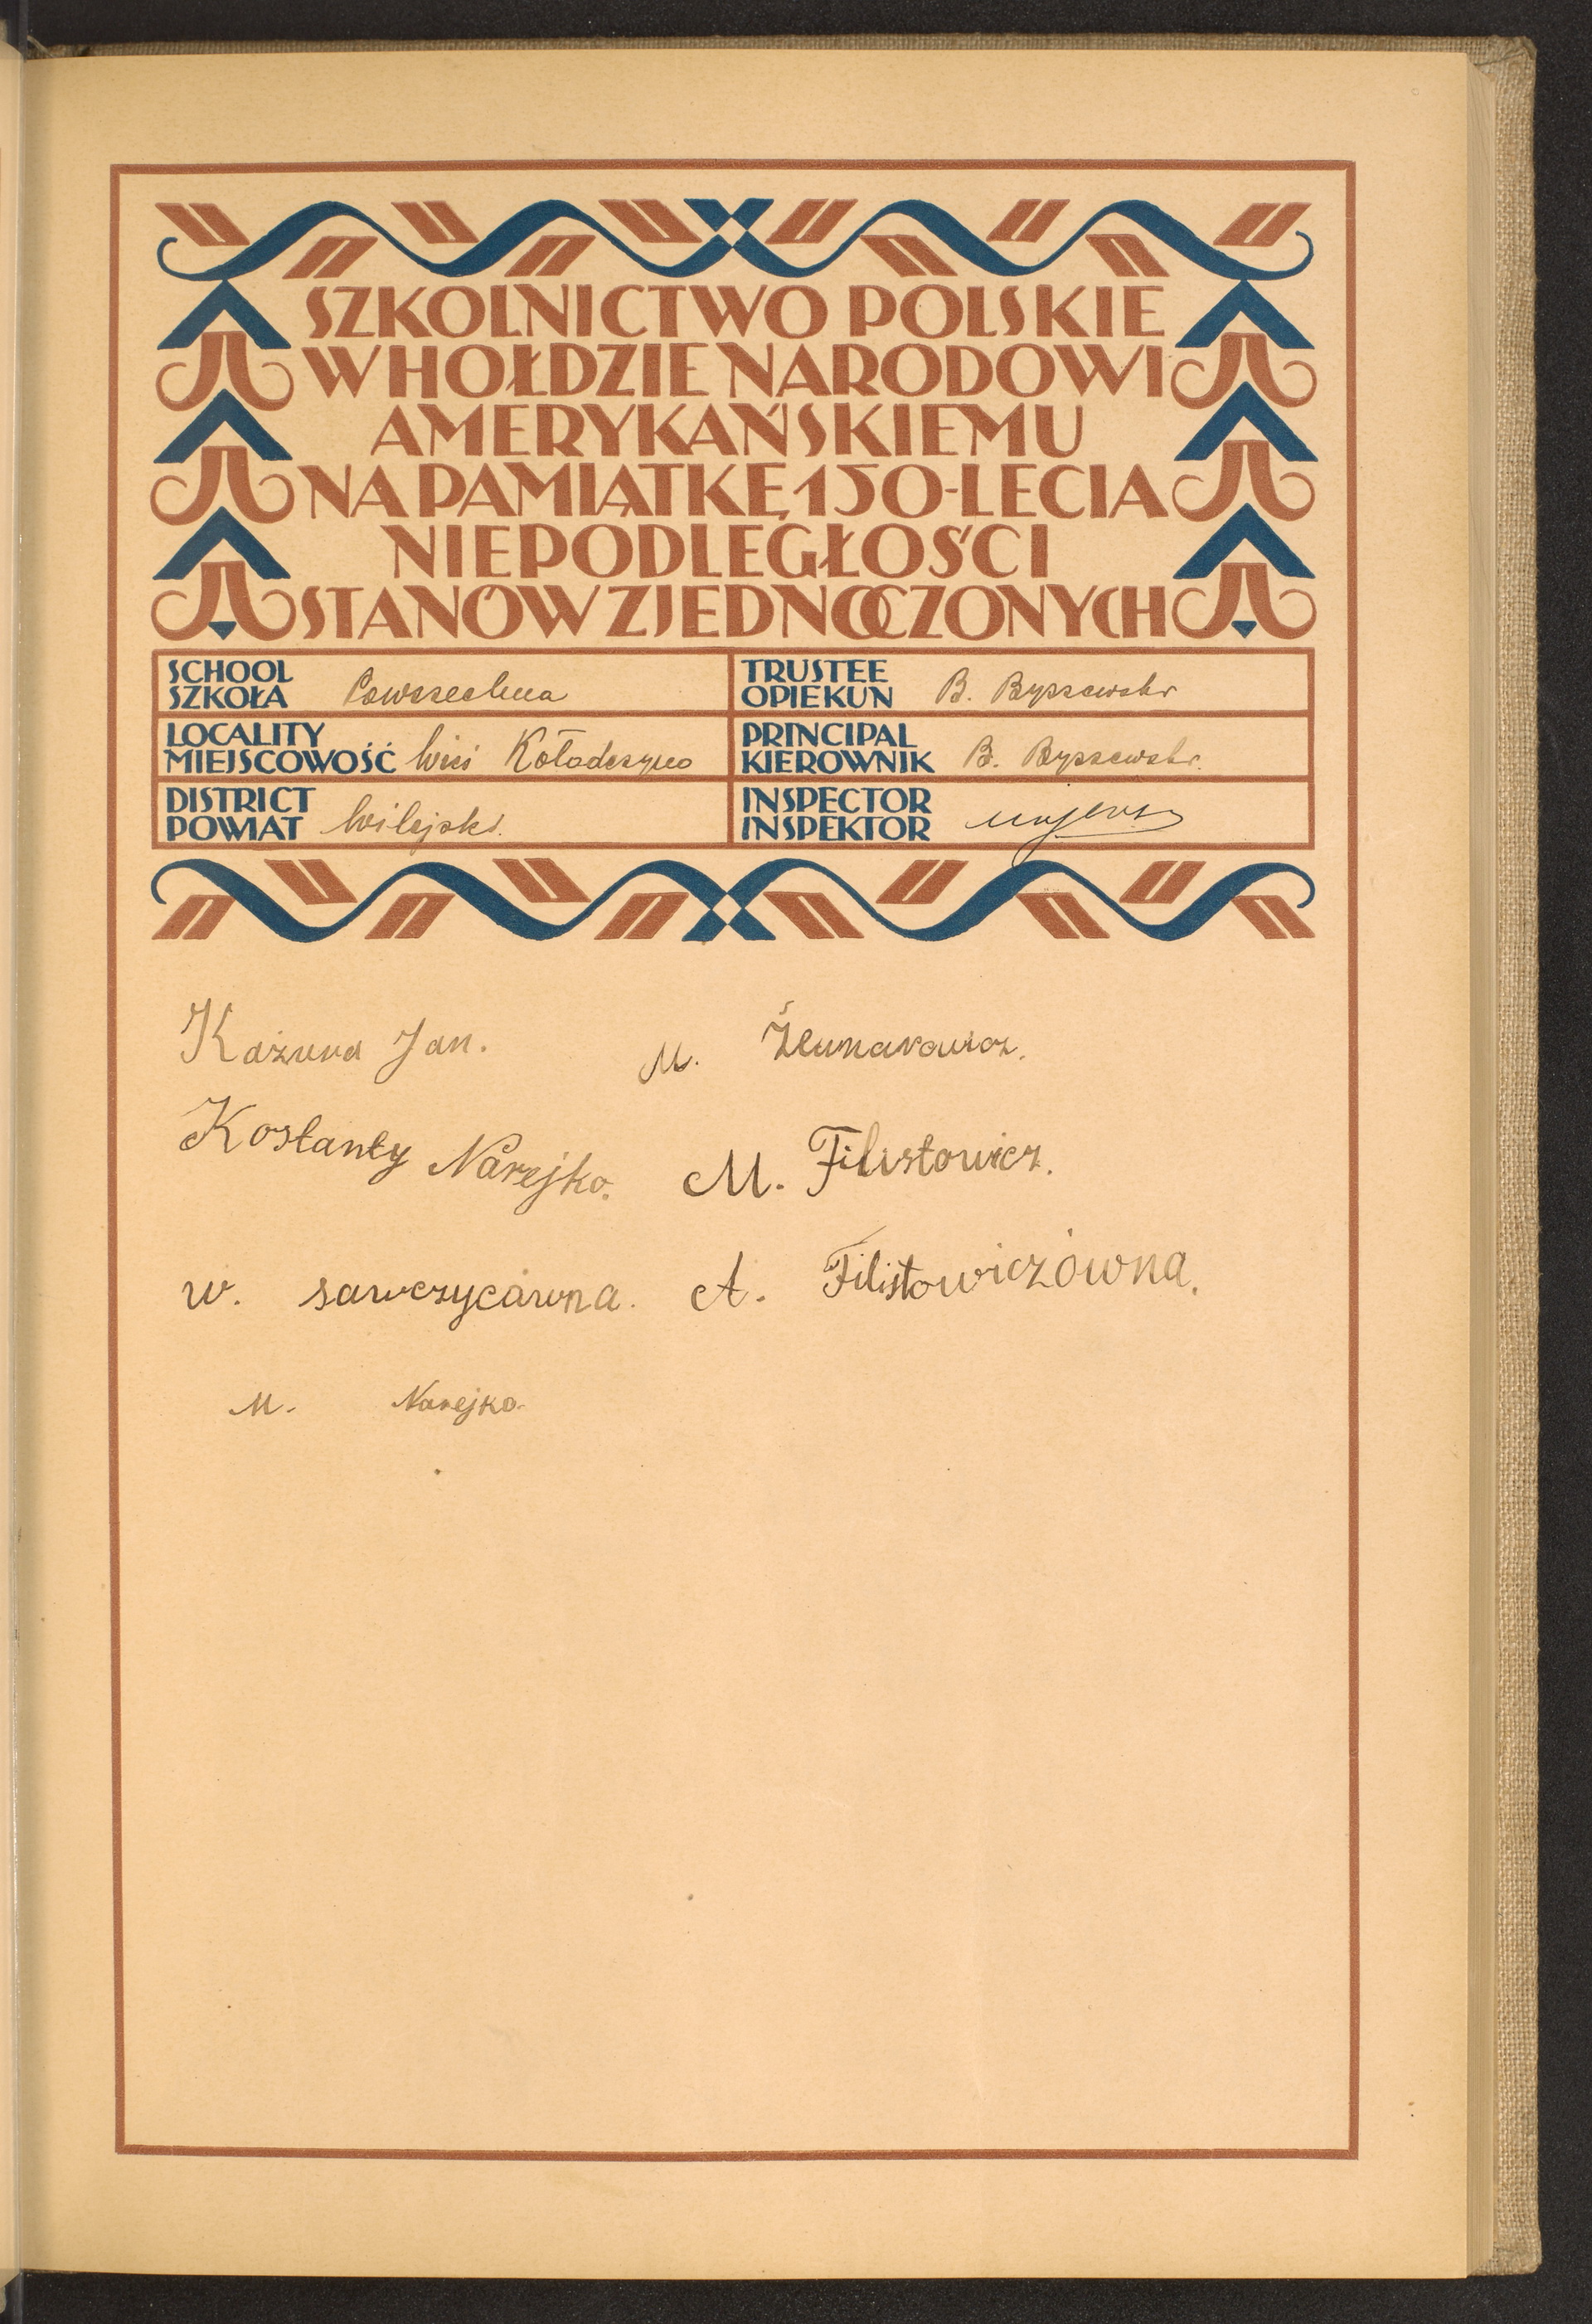 SZKOLNICTWO POLSKIE
W HOŁDZIE NARODOWI
AMERYKAŃSKIEMU
NA PAMIĄTKĘ 150-LECIA
NIEPODLEGŁOŚCI
STANÓW ZJEDNOCZONYCH
SCHOOL
SZKOŁA Powszechna
TRUSTEE
OPIEKUN B. Byszewski
LOCALITY
MIEJSCOWOŚĆ Wieś Kołodczyno
PRINCIPAL
KIEROWNIK B. Byszewski.
DISTRICT
POWIAT Wilejski.
INSPECTOR
INSPEKTOR
Każura Jan.
M.
Kostanty Narejko. M. Filistowicz.
w. sawczycówna. A. Filistowiczówna.
M. Narejko.